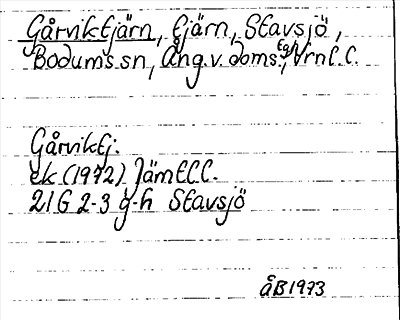 Gårviktjärn, tjärn, Stavsjö,
Bodums sn, Ång.v. doms., Vrnl. l.
Gårviktj.
ek (1972) Jämtl l.
21 G 2-3 g-h Stavsjö
åB 1973